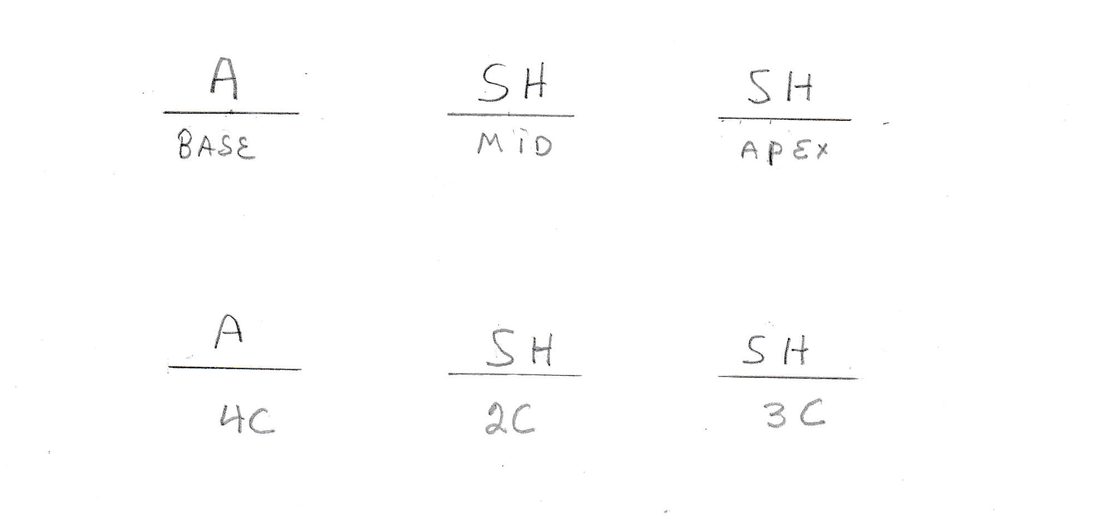 A SH SH
BASE MID APEX
A SH SH
4C 2C 3C